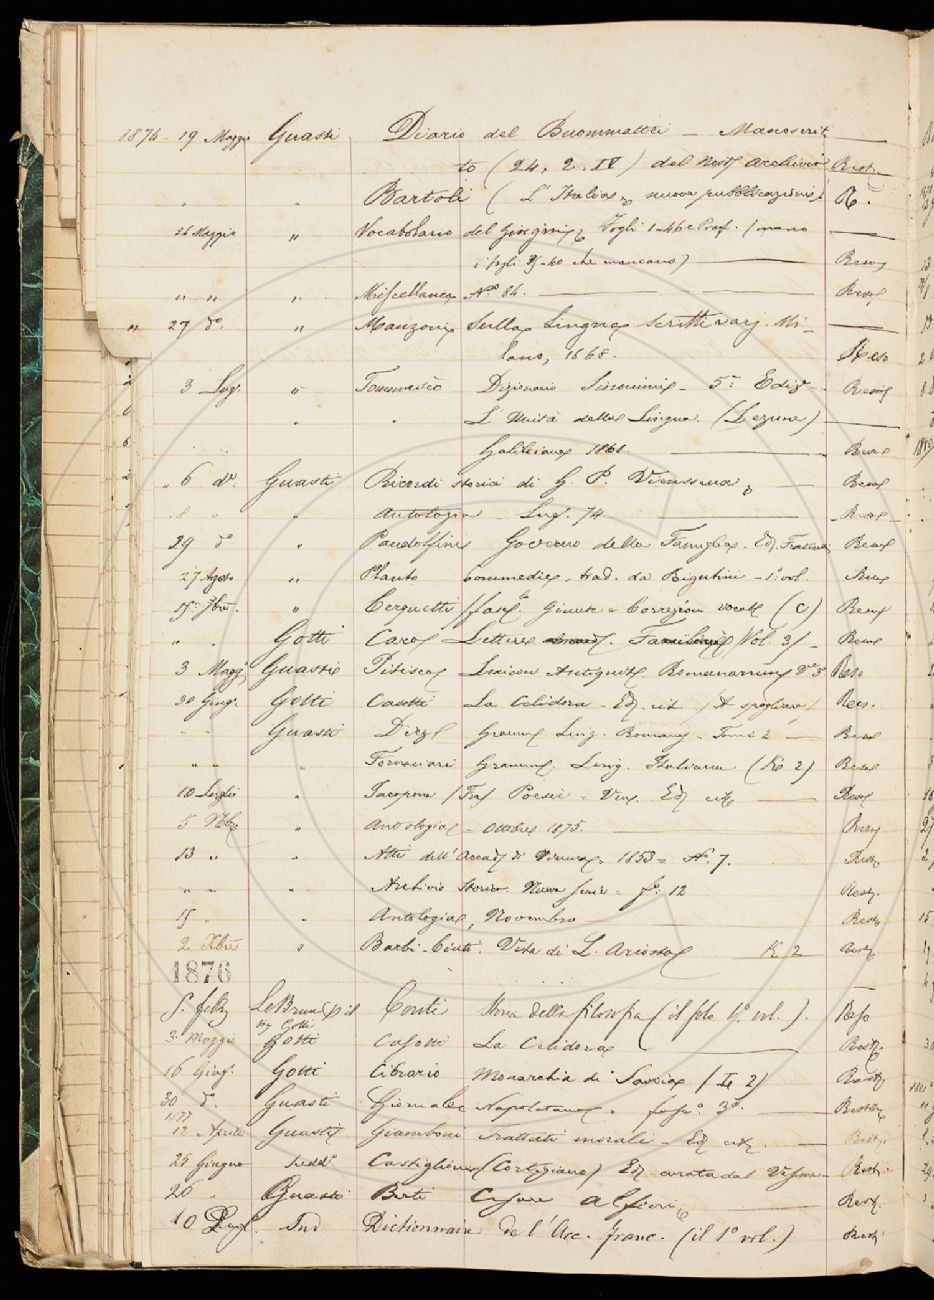 1874 - 19 Maggio Guasti Diario del Buommattei - Manoscrit
to (24, 2. IV) del nost. archivio Rest.
" " Bartoli ( L'Italia, nuova pubblicazione) R.
26 Maggio " Vocabolario del Fogli 1-46 e Pref. (meno
i fogli 40 che mancano) Reso
" " " Miscellanea No. 84. Reso
" 27 do. " Manzoni Sulla Lingua scritti varj. Mi-
lano, 1868. Reso
3 Lug. " Tommaseo Dizionario Sinonimi - 5a. Ediz. Reso
" " L'Unità della Lingua. (Lezione)
1868 Reso
" 6 do. Guasti Ricordi storici di G. P. Vieusseux Reso
" " Antologia - Lug. 74 Reso
29 do " Pandolfini Governo della Famiglia. Ed. Reso
27 Agosto " Plauto Commedie, trad. da Rigutini - 1o. vol. Reso
15 7bre. " Cerquetti Giunte e Correzioni vocab. (C) Reso
" " Gotti Caro Lettere Familiari Vol. 3 Reso
3 Magg. Guasti Pitisco Lexicon Antiquit. Romanarum Ve. 3 Reso
30 Giug. Gotti Casotti La Celidora - Ed. cit. (A spogliare) Res.
" " Guasti Diez Gramm. Ling. Romanz. Tomi 2 Reso
" " " Fornaciari Gramm. Ling. Italiana (K 2) Reso
10 Luglio " Jacopone (Fra) Poesie - Ven. Ed. cit. Reso
5 Nbre " Antologia - Ottobre 1875. Reso
13 " " Atti dell'Accad. di Vienna, 1853 = No. 7. Rest.
" " " Archivio Storico. Nuova serie = fo. 12 Rest.
15 " " Antologia, Novembre Rest.
2 Xbre " Vita di L. Ariosto K 2 Rest.
1876
5. febb. Le Brun p. il
Sig. Gotti Conti Storia della filosofia (il solo 1o. vol.). Reso
3 Maggio Gotti Casotti La Celidora Rest.
16 Giug. Gotti Cibrario Monarchia di Savoia (I. 2) Rest.
30 do. Guasti Giornale Napoletano, fasc. 3o. Rest.
1877
12 Aprile Guasti Giamboni Trattati morali - Ed. cit. Rest.
25 Giugno Sudd. Castiglione (Cortegiano) Ed. curata dal Rest.
26 " Guasti Berti Cesare Alfieri Rest.
10 Lugl. Sud Dictionnaire de l'Acc. franc. (il 1o vol.) Rest.